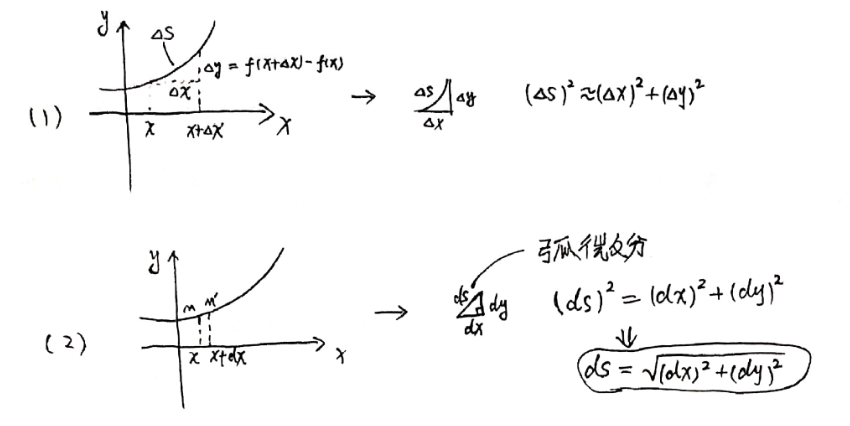 (1)
y
ΔS
Δy = f(x+Δx)-f(x)
Δx
x
x+Δx
x
→
ΔS
Δy
Δx
(ΔS)² ≈ (Δx)² + (Δy)²
(2)
y
M
M'
x
x+dx
x
→
弧微分
ds
dy
dx
(ds)² = (dx)² + (dy)²
⇓
ds = √(dx)² + (dy)²